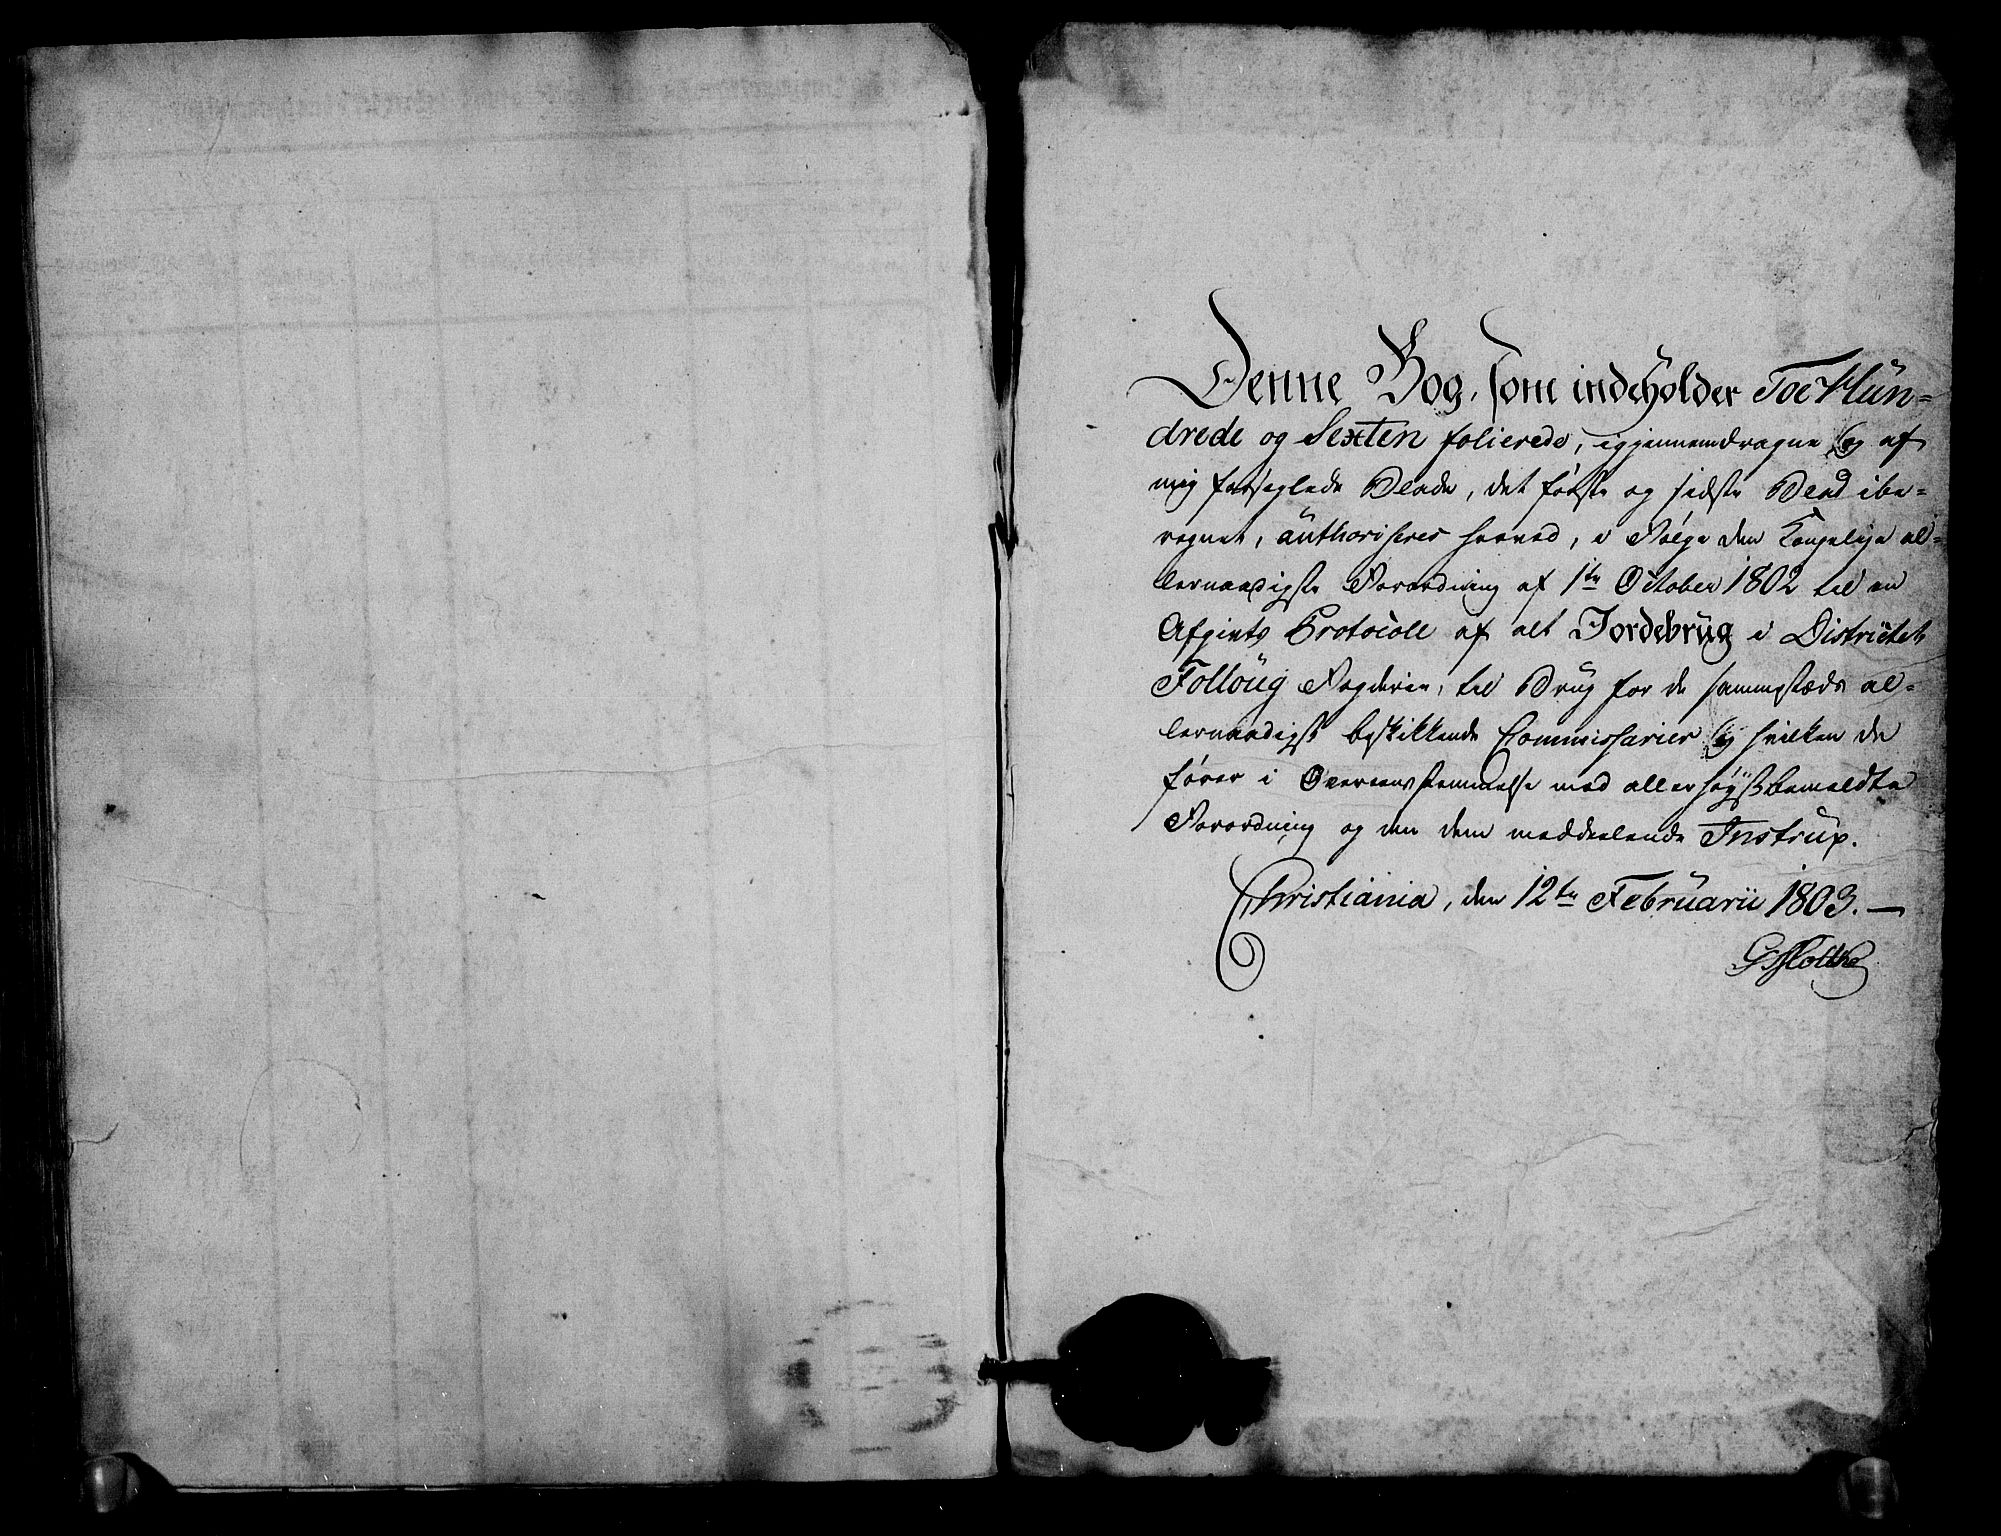 Denne Bog, som indeholder Toe Hün=
drede og Sexten folierede, igjennemdragne og af
mig forseglede Blade, det første og sidste Blad ibe=
regnet, aüthoriseres herved, i Følge den Kongelige al=
lernaadigste Forordning af 1te October 1802 til en
Afgivts Protocoll af alt Jordebrüg i Districtet
Follöüg Fogderie, til Brüg for de sammestæds al=
lernaadigst beskikkende Commissarier og hvilken de
fører i Overeensstemmelse med allerhøystbemeldte
Forordning og den dem meddeelende Instrüx.
Christiania, den 12te Februarii 1803.—
G Moltke